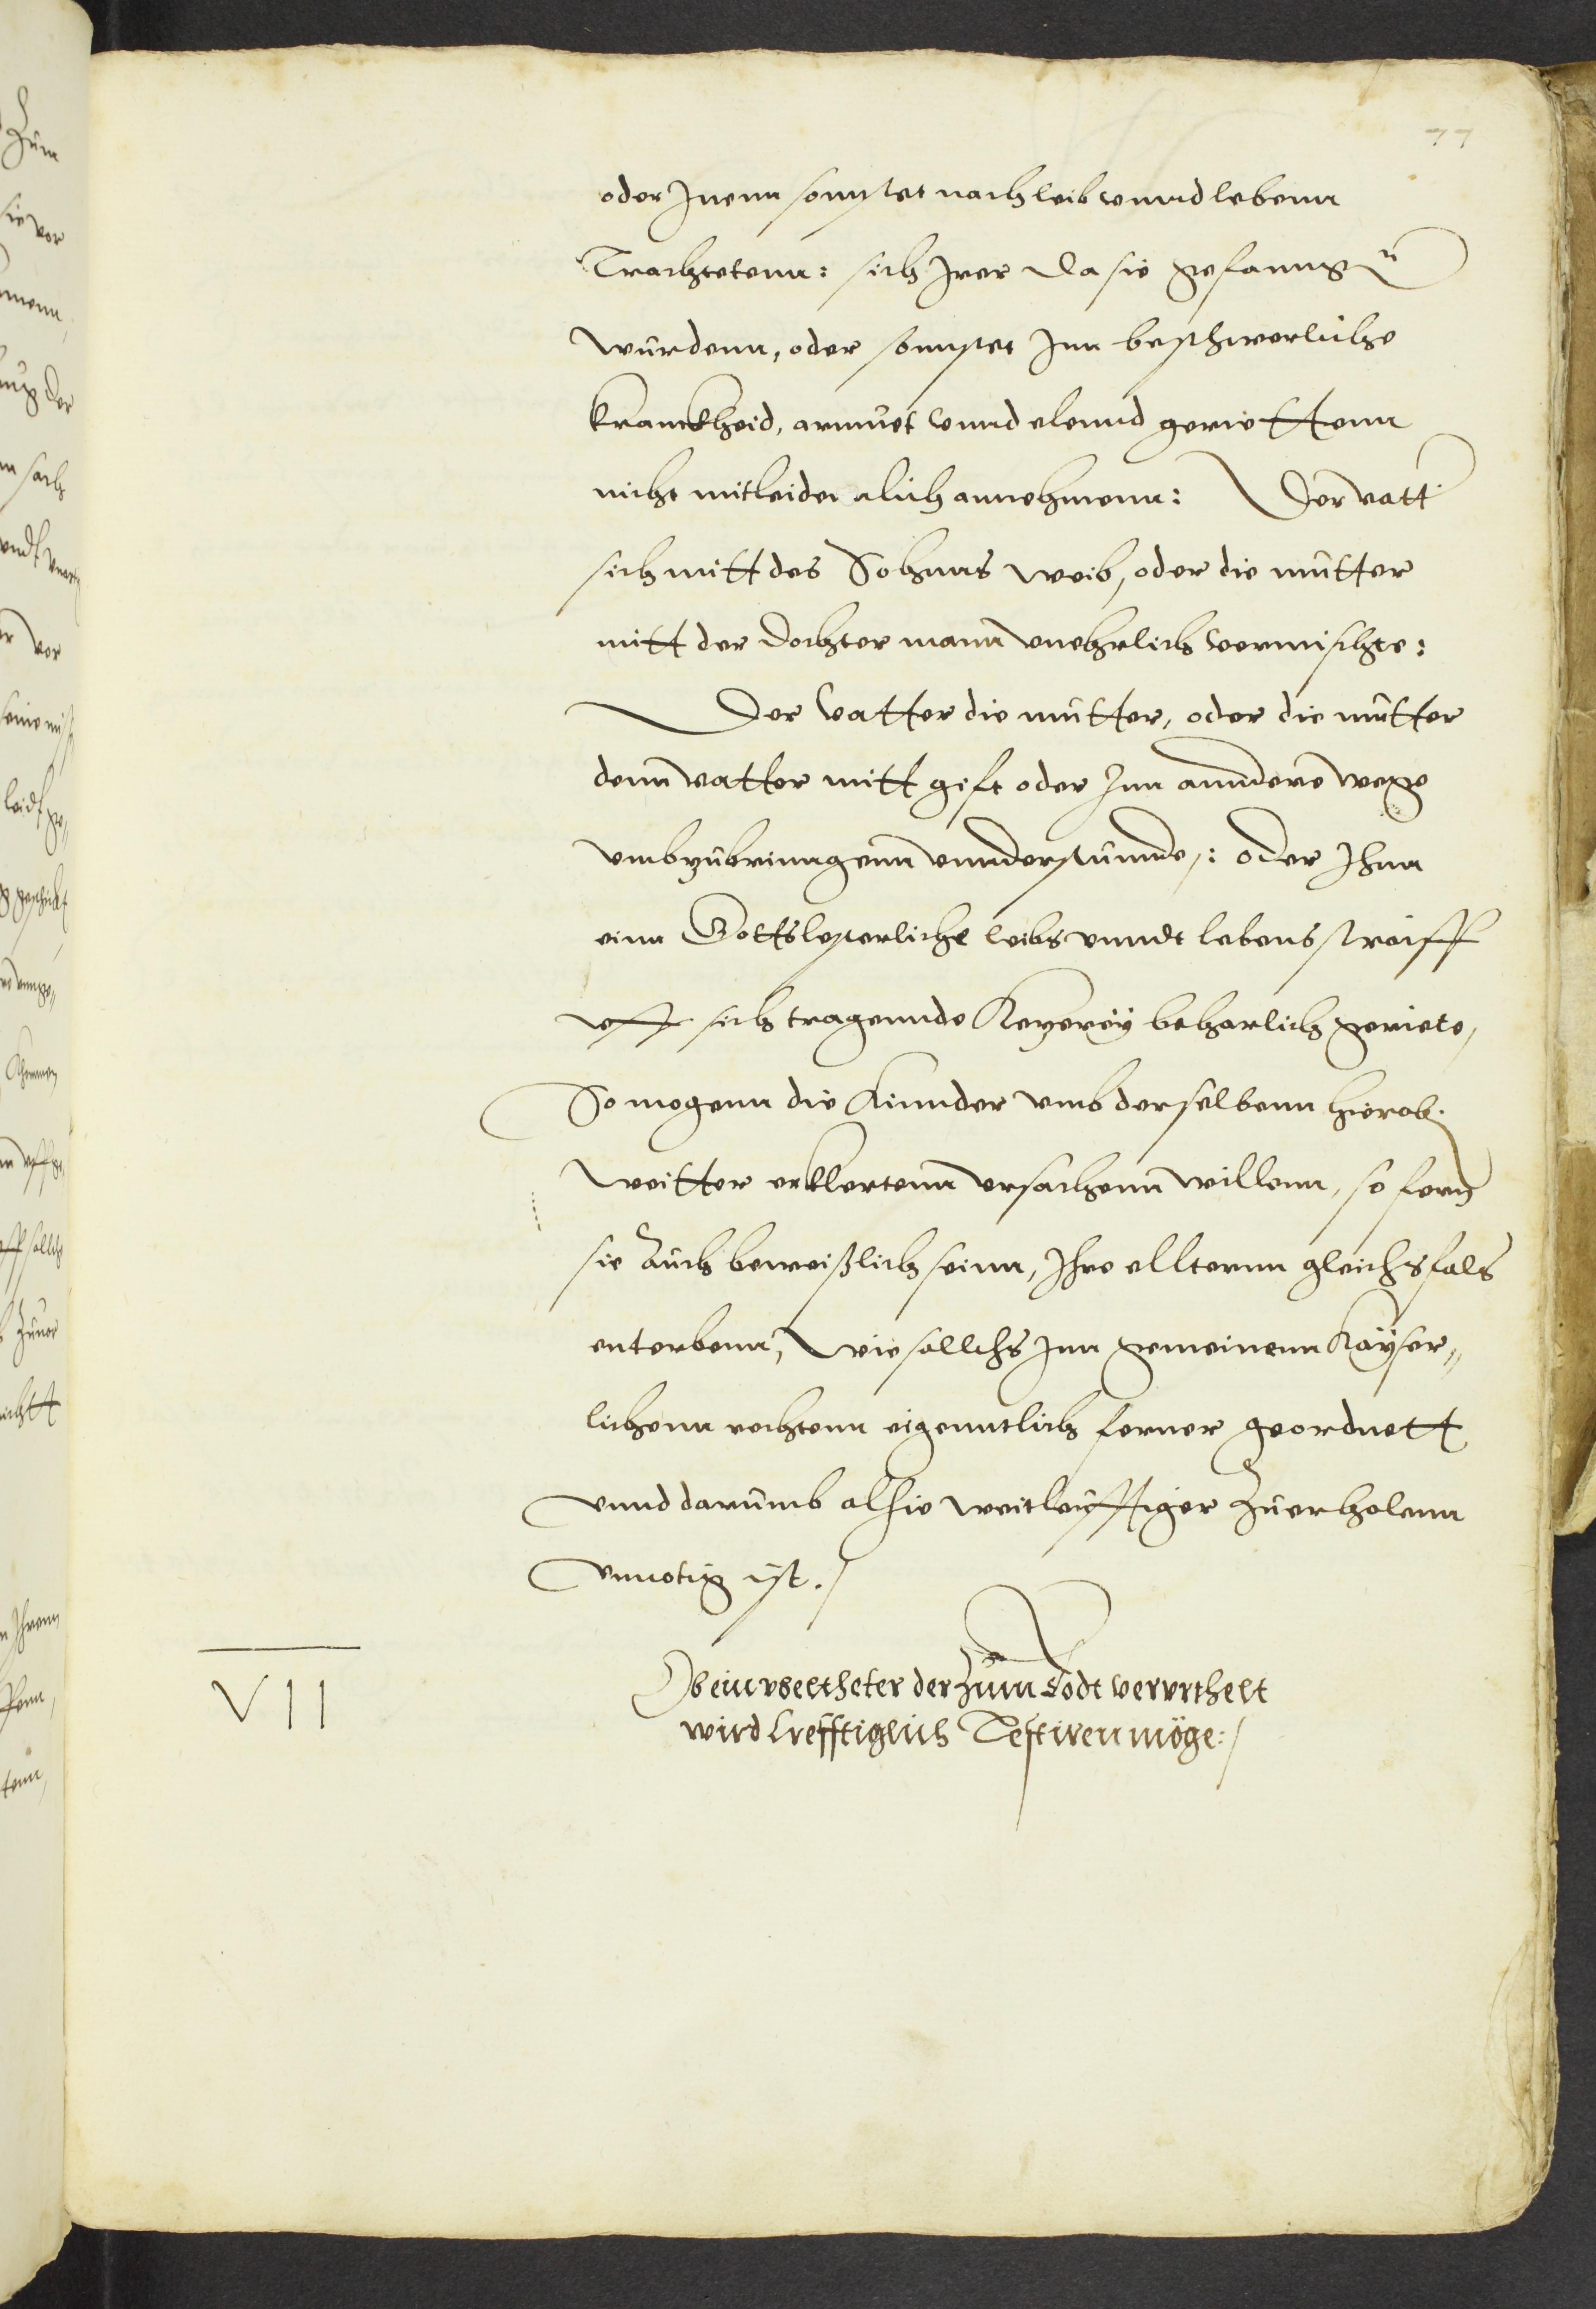 77
oder Jnenn sonnstet nach leib vnnd lebenn
Trachtetenn: sich Jrer da sie gefanngen
wurdenn, oder sonnstet Jnn beschwerliche
kranckheid, armuet vnnd elennd geriettenn
nicht mitleidenlich annehmenn: Der vatter
sich mitt des Sohnns weib, oder die mutter
mitt der dochter mann vnehrlich vermischte:
Der vatter die mutter, oder die mutter
denn vatter mitt gift oder Jnn anndere wege
vmbzubrinngenn vnnderstunnde: oder Jhnn
einn Gottslesterliche leibs vnndt lebens straiff
vff sich tragennde Kezerey beharlich geriete,
So mogenn die Kinnder vmb derselbenn hierob
weitter erklertenn vrsachenn willenn, so fern
sie auch beweißlich seinn, Jhre elltternn gleichsfals
enterbenn, wie sollchs Jnn gemeinenn Kayser„
lichenn rechtenn eigenntlich ferner geordnett
vnnd darumb alhie weitleufftiger zuerholenn
vnnotig ist.
VII
Ob ein vbeltheter der zum Todt verurthelt
wird krefftiglich Testiren möge: